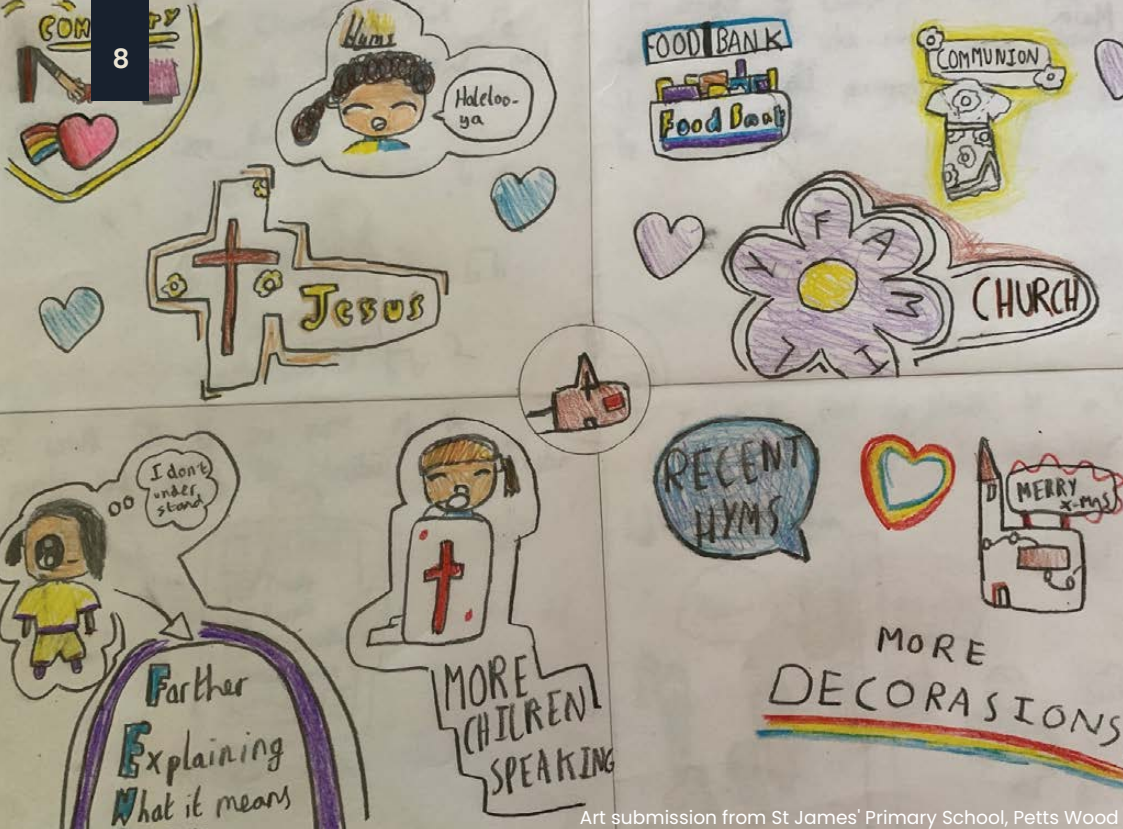 8
Hyms
Haleloo-
ya
Jesus
FOOD BANK
Food Bank
COMMUNION
FAMILY
CHURCH
I don't
under
stand
Farther
Explaining
What it means
MORE
CHILREN
SPEAKING
RECENT
HYMS
MERRY
X-MAS
MORE
DECORASIONS
Art submission from St James' Primary School, Petts Wood